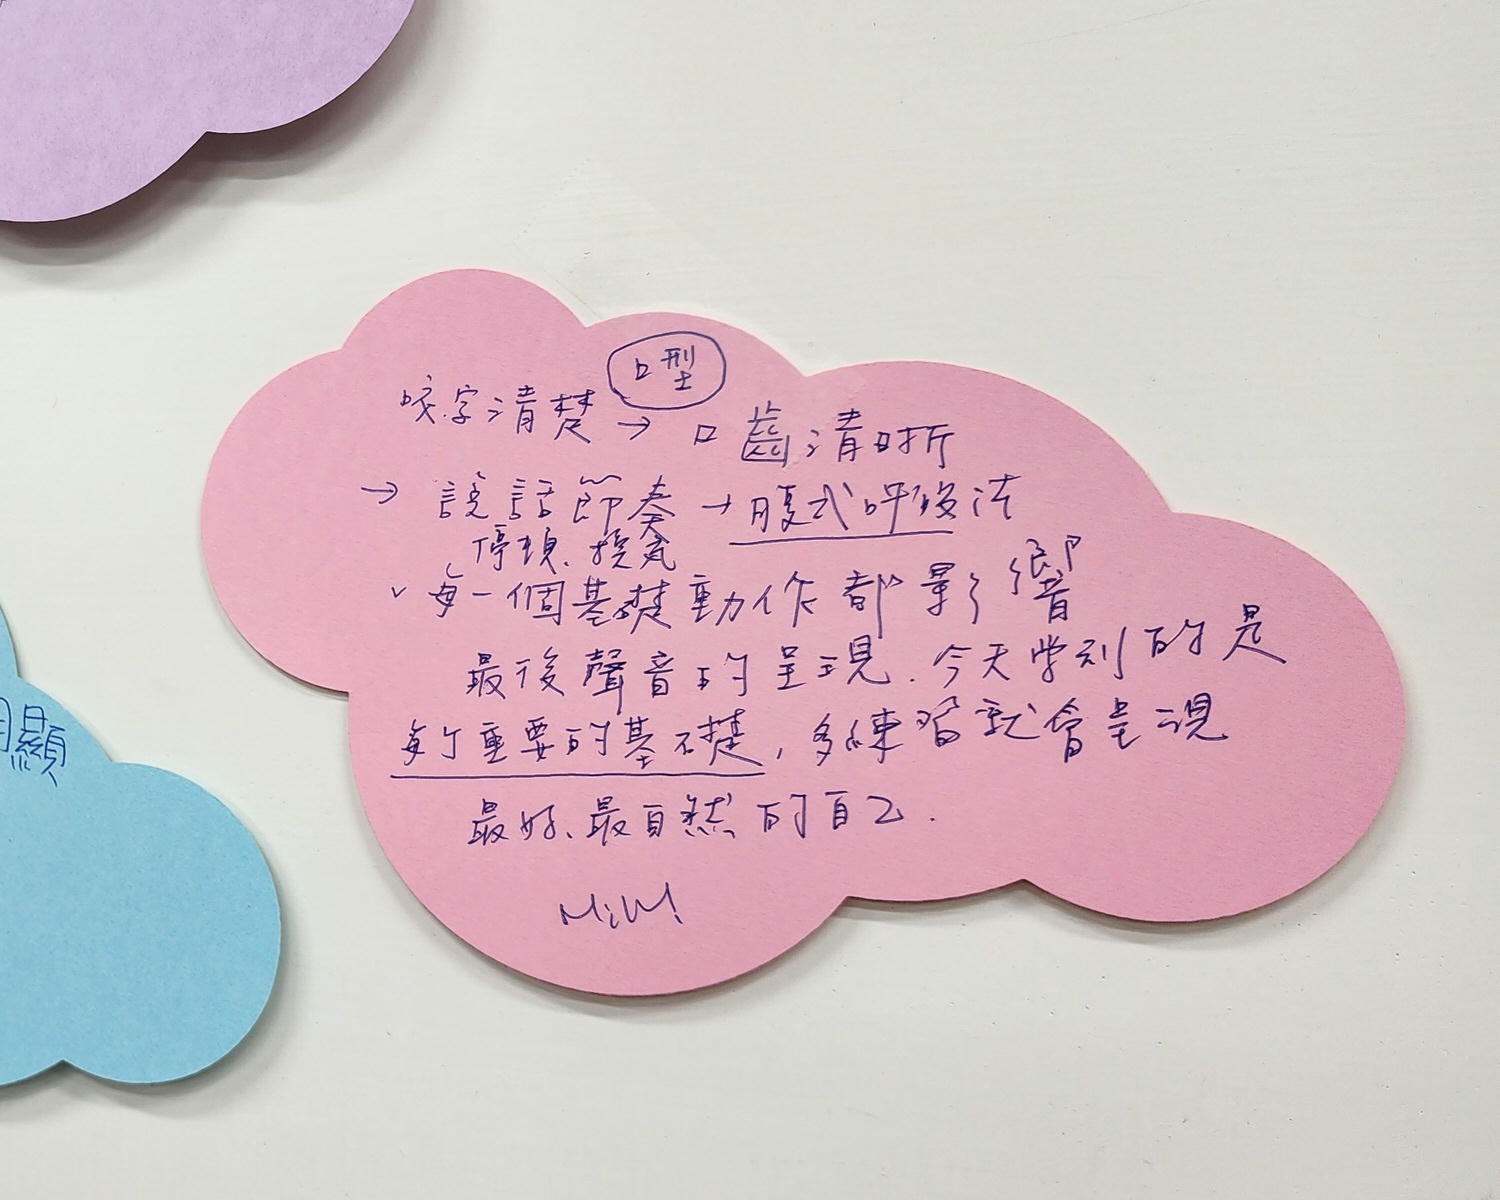 口型
咬字清楚 → 口齒清晰
→ 說話節奏 → 腹式呼吸法
停頓、換氣
ˇ 每一個基礎動作都影響
最後聲音的呈現.今天學到的是
重要的基礎,多練習就會呈現
最好、最自然的自己.
Mimi
顯